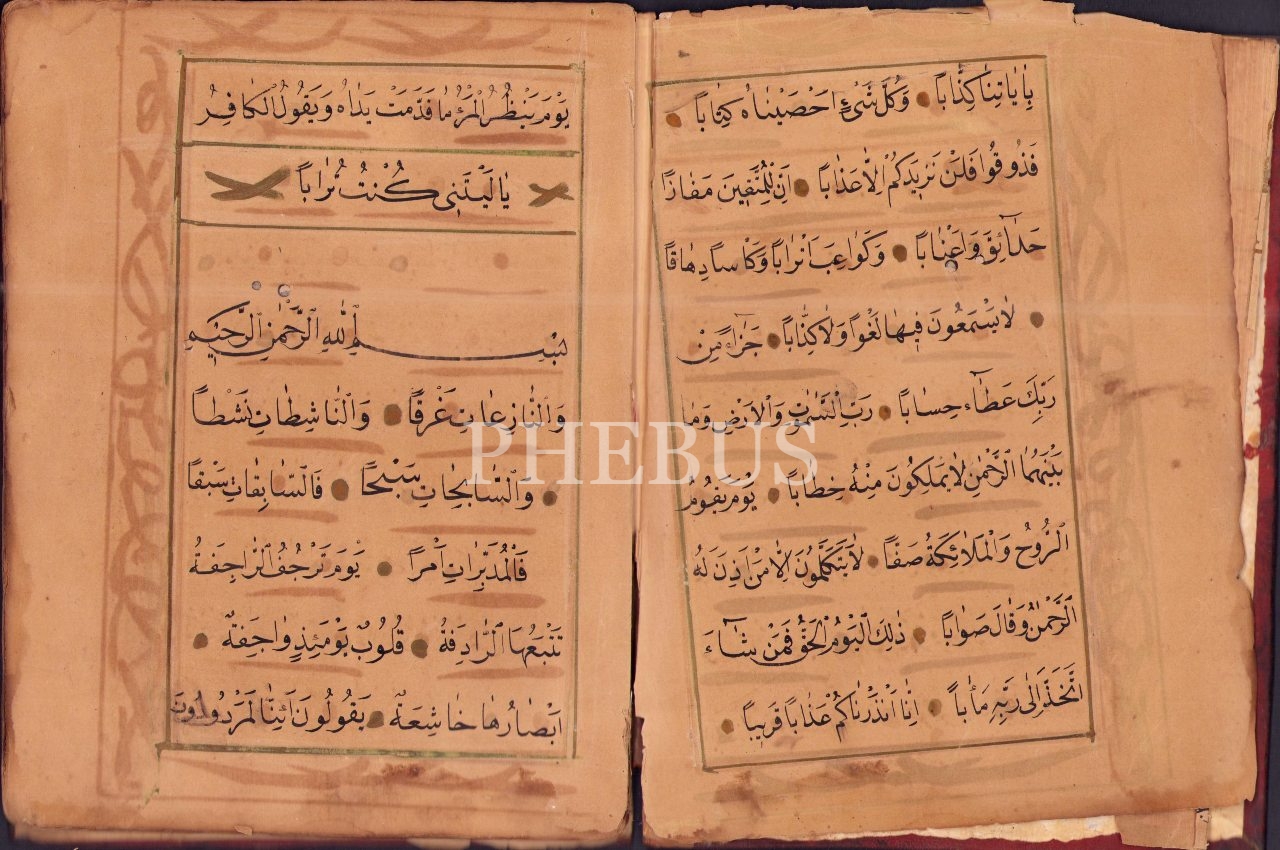 بِاٰيَاتِنَا كِذَّابًا وَكُلَّ شَىْءٍ اَحْصَيْنَاهُ كِتَابًا
فَذُوقُوا فَلَنْ نَزِيدَكُمْ اِلَّا عَذَابًا اِنَّ لِلْمُتَّقِينَ مَفَازًا
حَدَآئِقَ وَاَعْنَابًا وَكَوَاعِبَ اَتْرَابًا وَكَاْسًا دِهَاقًا
لَا يَسْمَعُونَ فِيهَا لَغْوًا وَلَا كِذَّابًا جَزَآءً مِنْ
رَبِّكَ عَطَآءً حِسَابًا رَبِّ السَّمٰوَاتِ وَالْاَرْضِ وَمَا
بَيْنَهُمَا الرَّحْمٰنِ لَا يَمْلِكُونَ مِنْهُ خِطَابًا يَوْمَ يَقُومُ
الرُّوحُ وَالْمَلَائِكَةُ صَفًّا لَا يَتَكَلَّمُونَ اِلَّا مَنْ اَذِنَ لَهُ
الرَّحْمٰنُ وَقَالَ صَوَابًا ذٰلِكَ الْيَوْمُ الْحَقُّ فَمَنْ شَآءَ
اتَّخَذَ اِلٰى رَبِّهِ مَاٰبًا اِنَّا اَنْذَرْنَاكُمْ عَذَابًا قَرِيبًا
يَوْمَ يَنْظُرُ الْمَرْءُ مَا قَدَّمَتْ يَدَاهُ وَيَقُولُ الْكَافِرُ
يَا لَيْتَنِى كُنْتُ تُرَابًا
بِسْمِ اللّٰهِ الرَّحْمٰنِ الرَّحِيمِ
وَالنَّازِعَاتِ غَرْقًا وَالنَّاشِطَاتِ نَشْطًا
وَالسَّابِحَاتِ سَبْحًا فَالسَّابِقَاتِ سَبْقًا
فَالْمُدَبِّرَاتِ اَمْرًا يَوْمَ تَرْجُفُ الرَّاجِفَةُ
تَتْبَعُهَا الرَّادِفَةُ قُلُوبٌ يَوْمَئِذٍ وَاجِفَةٌ
اَبْصَارُهَا خَاشِعَةٌ يَقُولُونَ اَئِنَّا لَمَرْدُودُونَ
PHEBUS